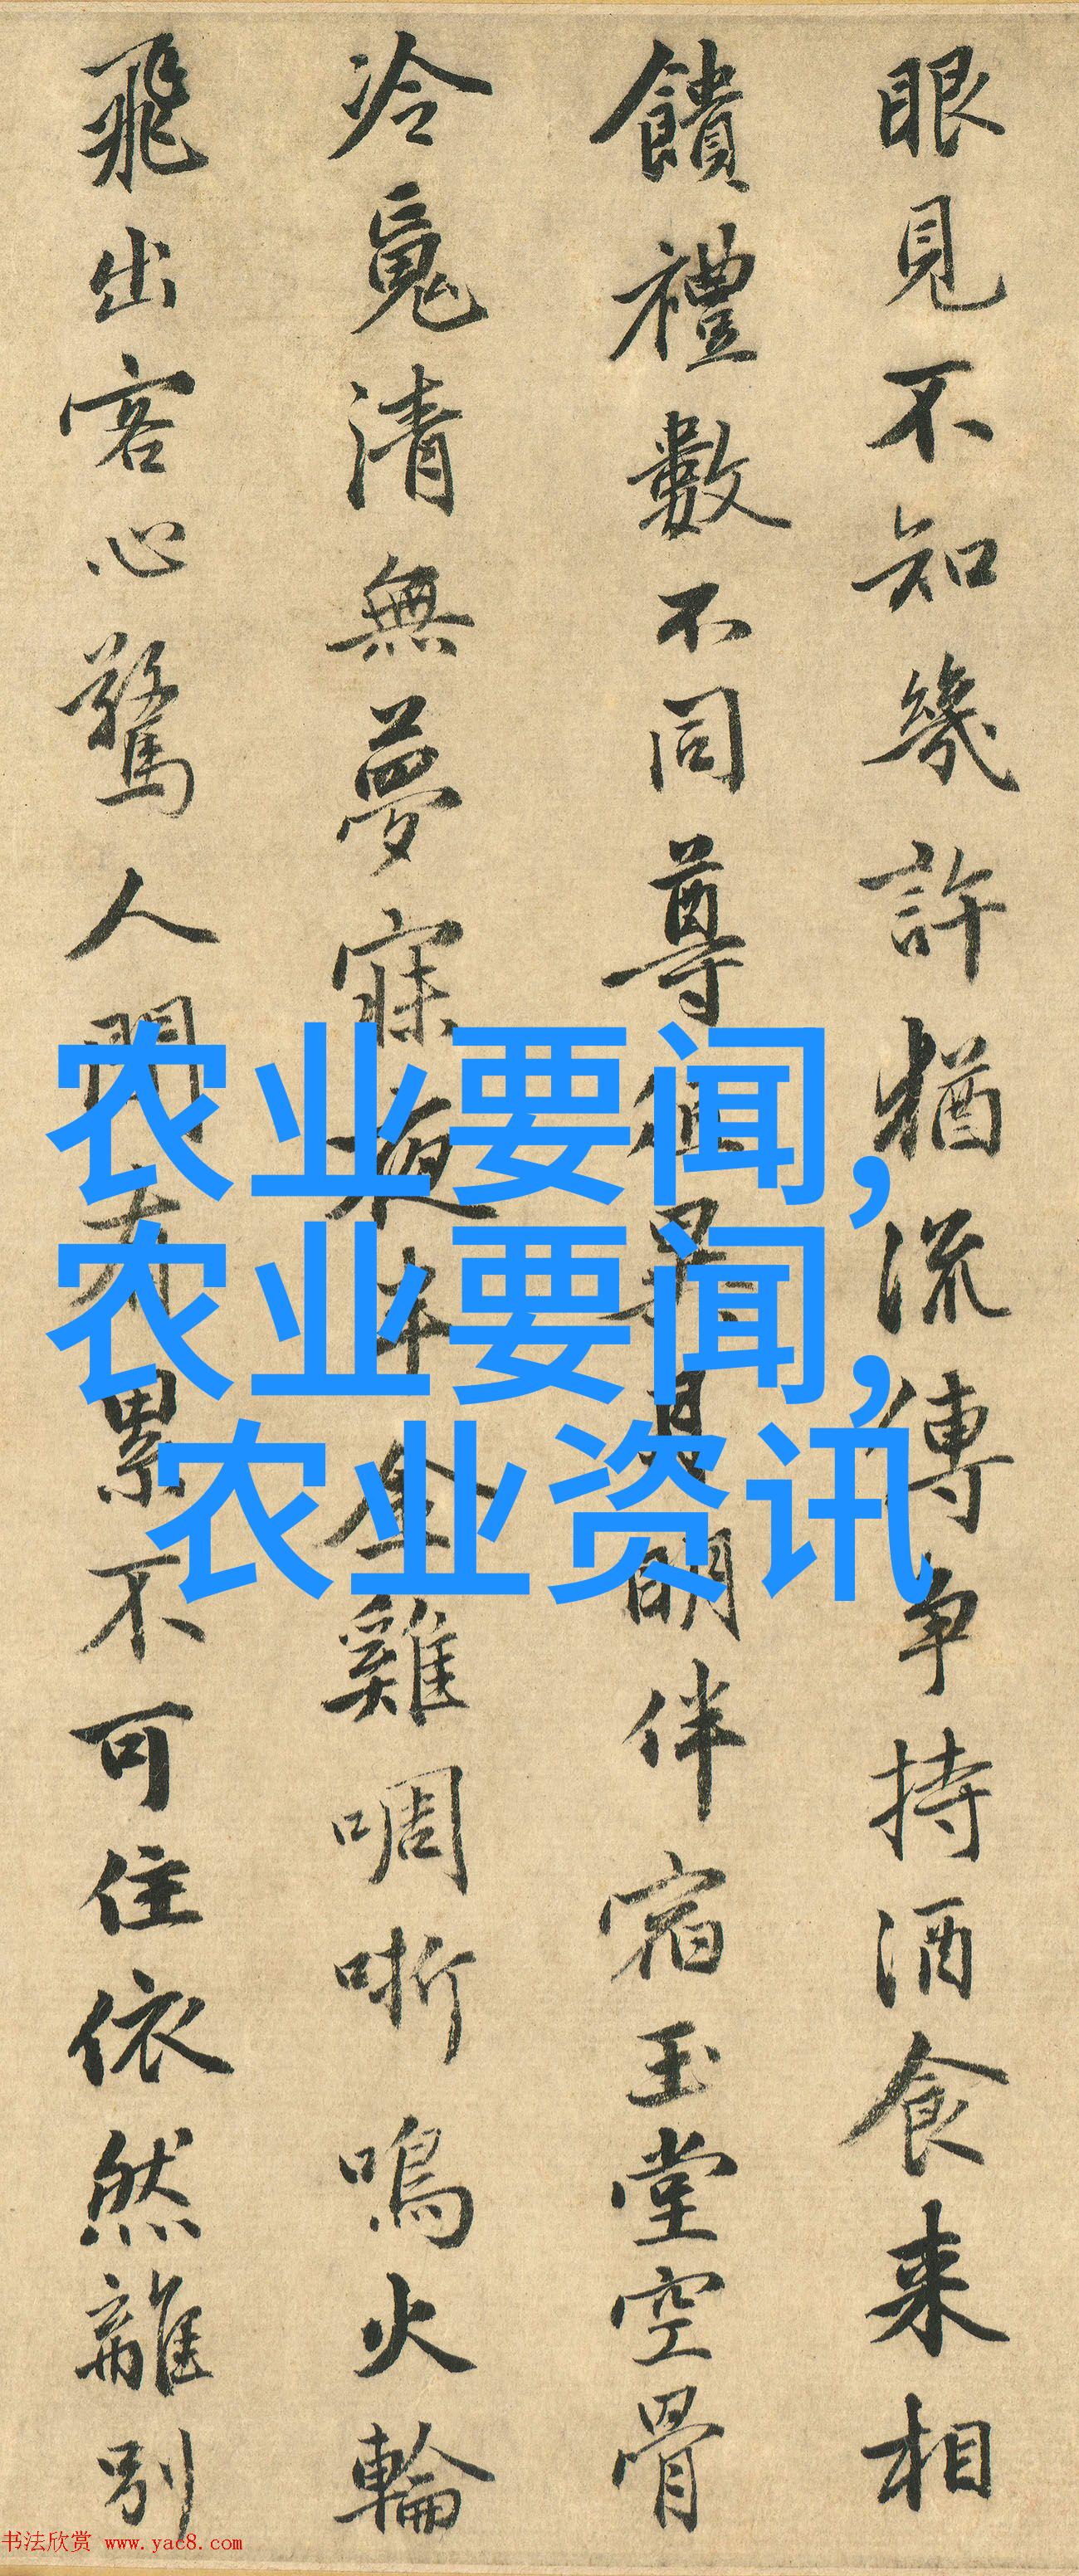 眼見不知幾許猶流傳争持酒食来相
饋禮數不同尊俎異月明伴宿玉堂空骨
冷魂清無夢寐夜半金雞啁哳鳴火輪
飛出客心驚人間有累不可住依然離別
农业要闻,
农业要闻,
农业资讯
书法欣赏 www.yac8.com